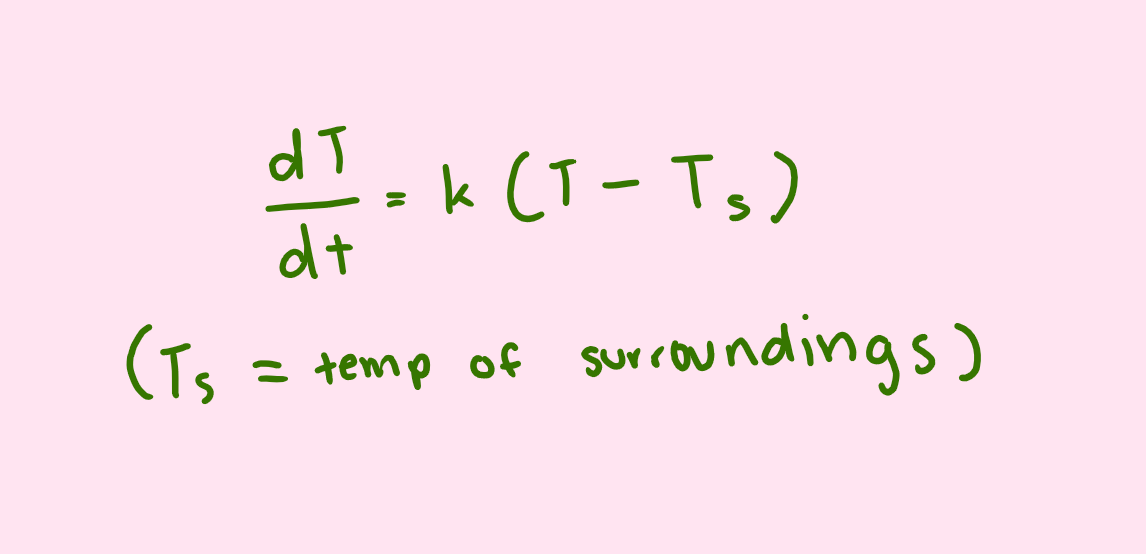 dT/dt = k (T - Ts)
(Ts = temp of surroundings)